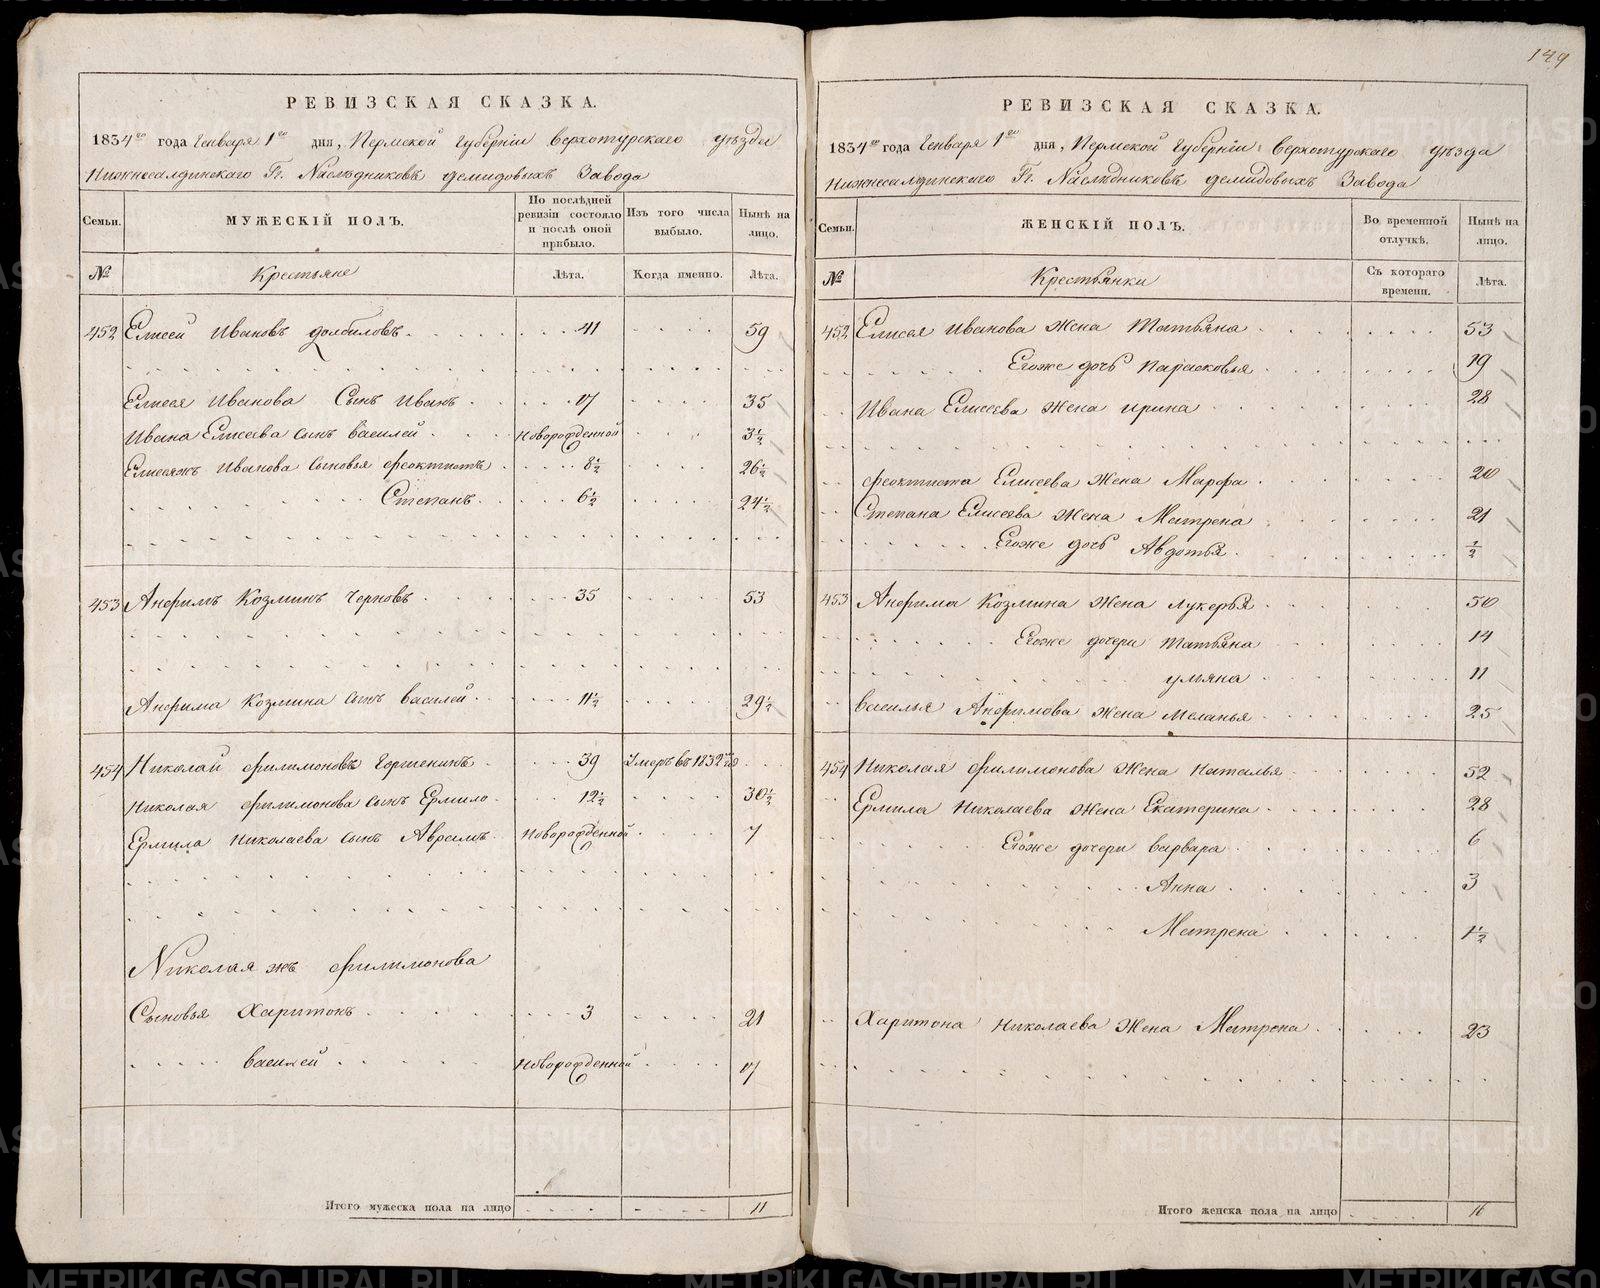 149
РЕВИЗСКАЯ СКАЗКА.
1834го года Генваря 1го дня, Пермской Губерніи Верхотурскаго уѣзда
Нижнесалдинскаго Гг. Наслѣдниковъ Демидовыхъ Завода
Семьи.
МУЖЕСКІЙ ПОЛЪ.
По послѣдней ревизіи состояло и послѣ оной прибыло.
Изъ того числа выбыло.
Нынѣ на лицо.
№
Крестьяне
Лѣта.
Когда именно.
Лѣта.
452 Елисей Ивановъ Долбиловъ 41 59
Елисея Иванова Сынъ Иванъ 17 35
Ивана Елисеева сынъ Василей Новорожденной 3½
Елисеяжъ Иванова сыновья Феоктистъ 8½ 26½
Степанъ 6½ 24½
453 Анфимъ Козминъ Черновъ 35 53
Анфима Козмина сынъ Василей 11½ 29½
454 Николай Филимоновъ 39 Умеръ въ 1832мъ
Николая Филимонова сынъ Ермило 12½ 30½
Ермила Николаева сынъ Авреямъ Новорожденной 7
Николая жъ Филимонова
Сыновья Харитонъ 3 21
Василей Новорожденной 17
Итого мужеска пола на лицо 11
РЕВИЗСКАЯ СКАЗКА.
1834го года Генваря 1го дня, Пермской Губерніи Верхотурскаго уѣзда
Нижнесалдинскаго Гг. Наслѣдниковъ Демидовыхъ Завода
Семьи.
ЖЕНСКІЙ ПОЛЪ.
Во временной отлучкѣ.
Нынѣ на лицо.
№
Крестьянки
Съ котораго времени.
Лѣта.
452 Елисея Иванова жена Татьяна 53
Егоже дочь Парасковья 19
Ивана Елисеева жена Ирина 28
Феоктиста Елисеева жена Марфа 20
Степана Елисеева жена Матрена 21
Егоже дочь Авдотья ½
453 Анфима Козмина жена Лукерья 50
Егоже дочери Татьяна 14
Ульяна 11
Василья Анфимова жена Меланья 25
454 Николая Филимонова жена Наталья 52
Ермила Николаева жена Екатерина 28
Егоже дочери Варвара 6
Анна 3
Матрена 1½
Харитона Николаева жена Матрена 23
Итого женска пола на лицо 16
METRIKI.GASO-URAL.RU